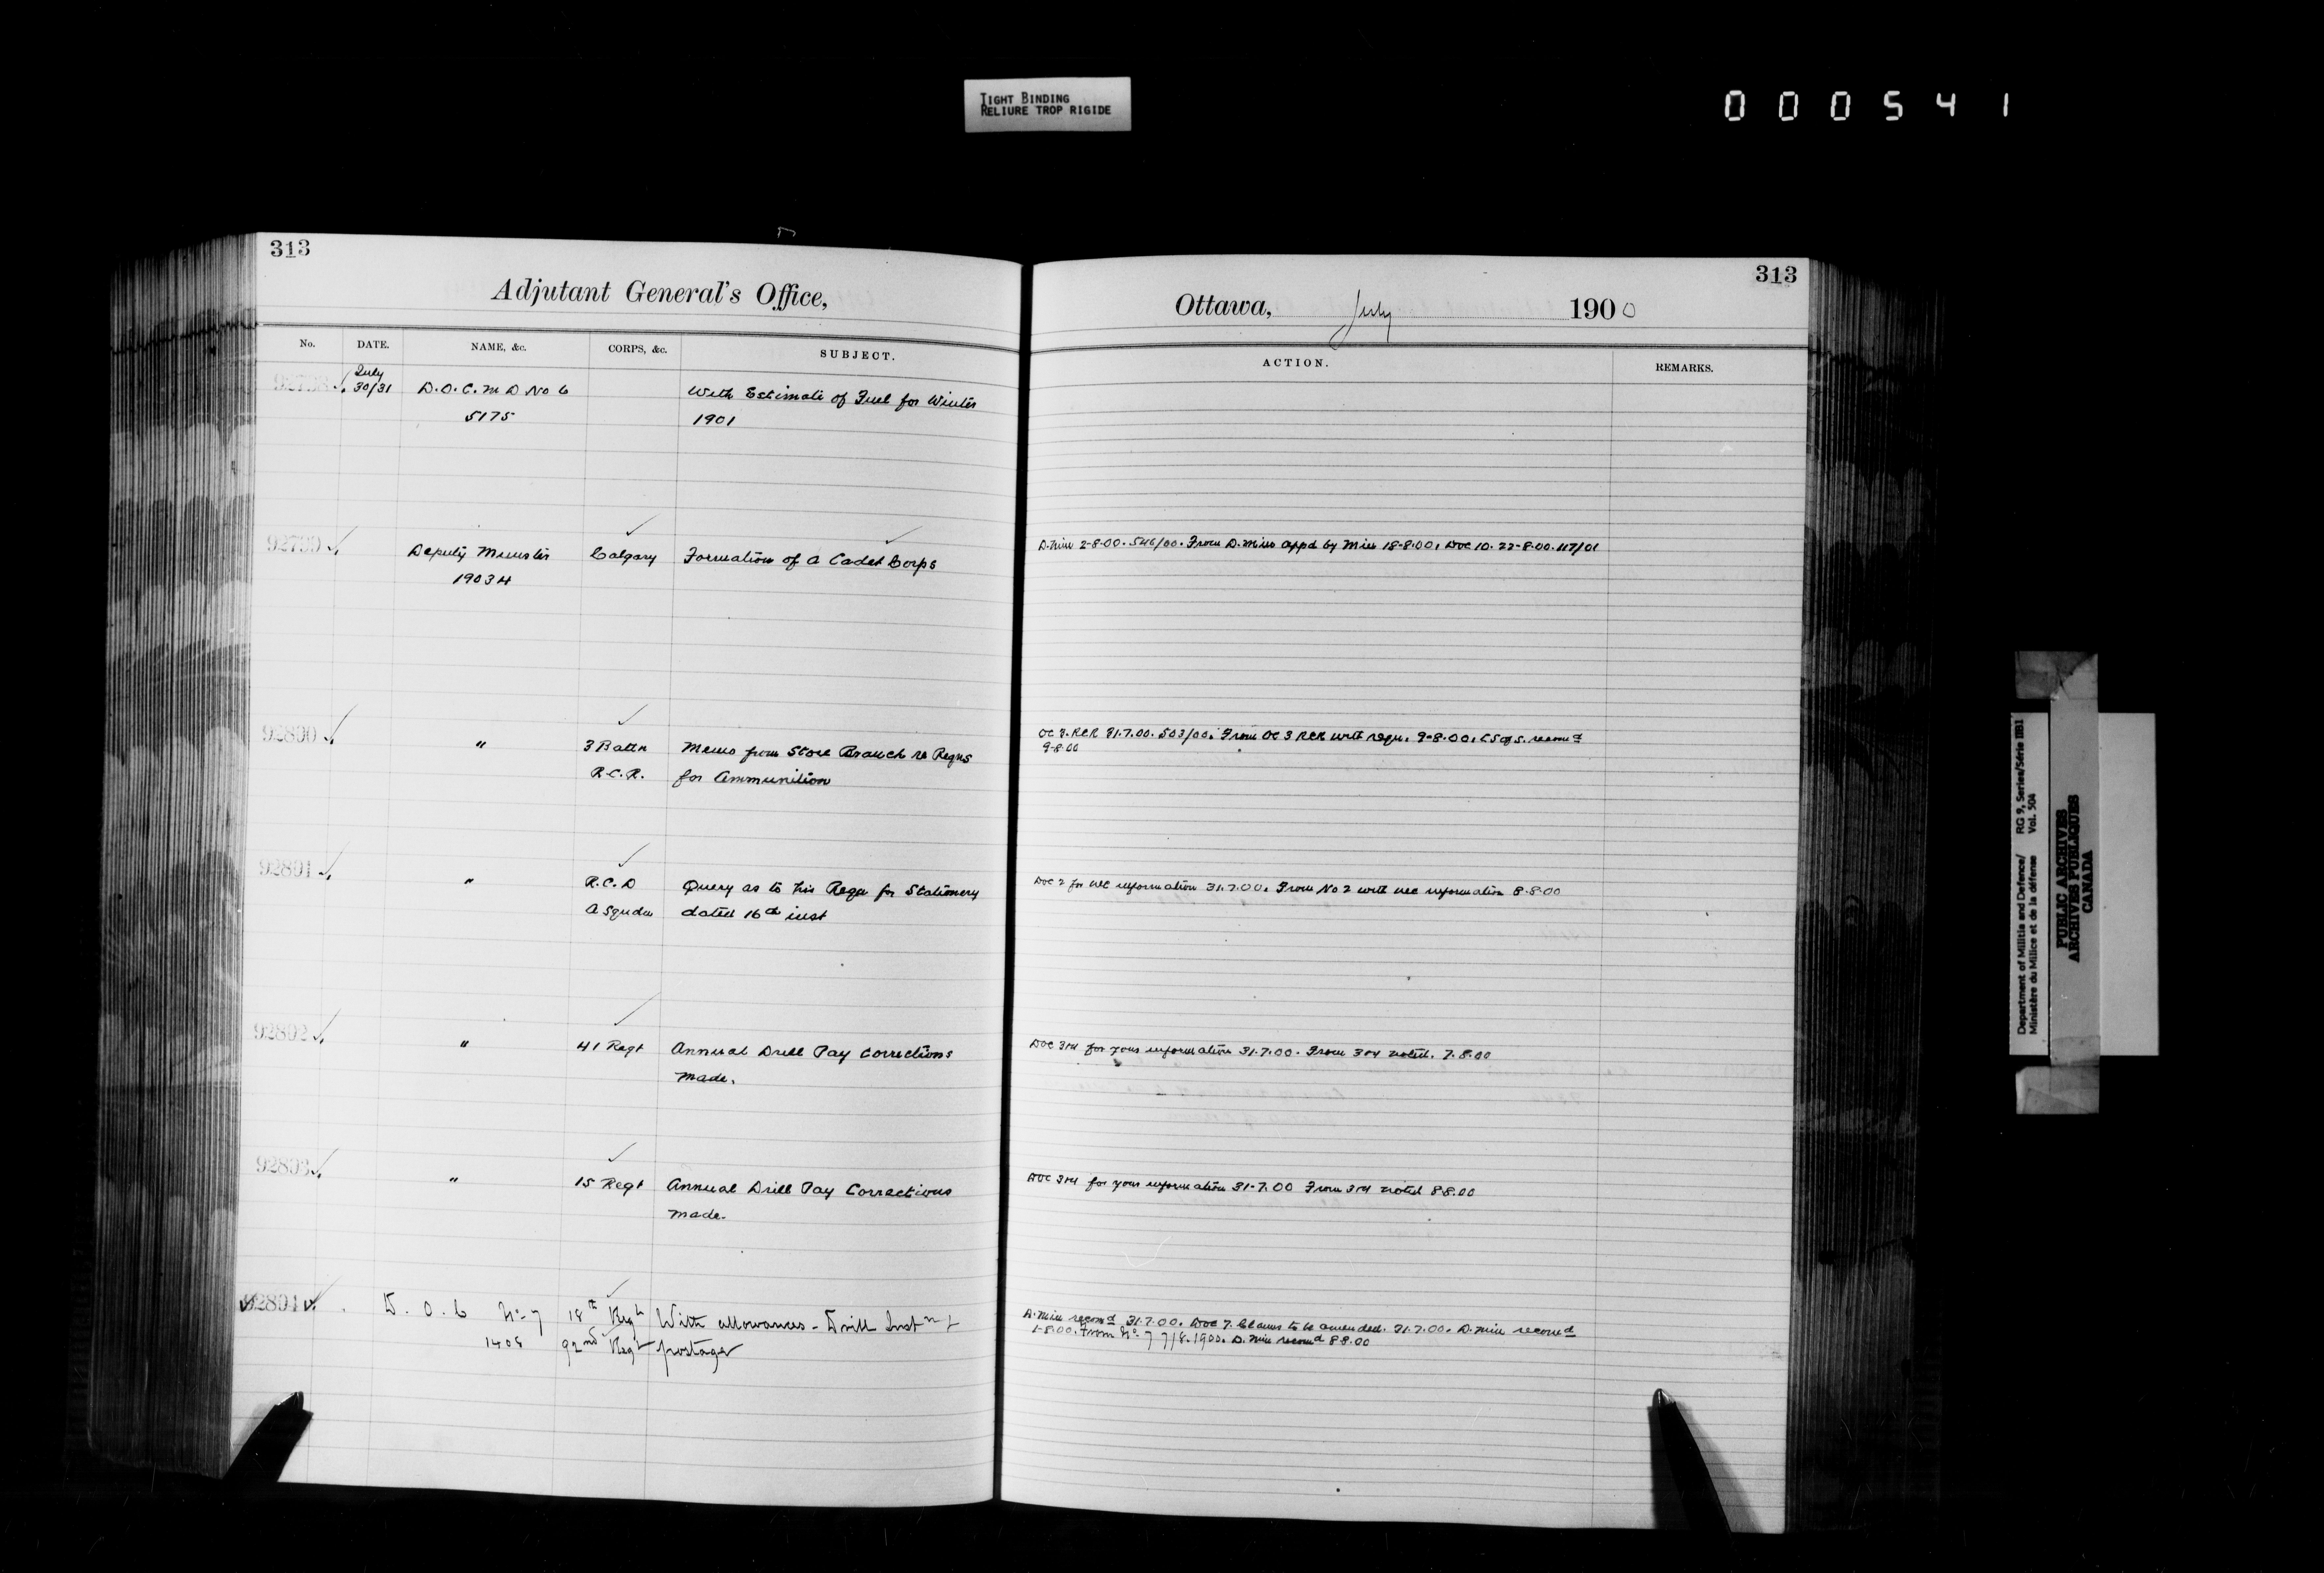 TIGHT BINDING
RELIURE TROP RIGIDE
000541
313
Adjutant General's Office,
No. DATE. NAME, &c. CORPS, &c. SUBJECT.
92798 July
30/31 D.O.C. M D No 6 With Estimate of Fuel for Winter
5175 1901
92799 Deputy Minister Calgary Formation of a Cadet Corps
19034
92800 " 3 Battn Memo from Store Branch re Reqns
R.C.R. for Ammunition
92801 " R.C.D Query as to his Reqn for Stationery
A Squdn dated 16th inst
92802 " 41 Regt Annual Drill Pay Corrections
made.
92803 " 15 Regt Annual Drill Pay Corrections
made.
92804 D. O. C No. 7 18th Regt With allowances - Drill Inst
1408 92nd Regt postage
313
Ottawa, July 1900
ACTION. REMARKS.
D. Min 2-8-00. 546/00. From D. Min appd by Min 18-8-00. DOC 10. 22-8-00. 117/01
OC 3. RCR 31.7.00. 503/00. From OC 3 RCR with reqn. 9-8-00. CS of S. recomd
9-8-00
DOC 2 for nec information 31.7.00. From No 2 with nec information 8-8-00
DOC 3+4 for your information 31.7.00. From 3+4 noted. 7.8.00
DOC 3+4 for your information 31-7.00 From 3+4 noted 8.8.00
D. Min recomd 31.7.00. DOC 7. Claims to be amended. 31.7.00. D. Min recomd
1-8-00. From No. 7 7/8.1900. D. Min recomd 8 8.00
Department of Militia and Defence/ RG 9, Series/Série IIB1
Ministère du Milice et de la défense Vol. 504
PUBLIC ARCHIVES
ARCHIVES PUBLIQUES
CANADA